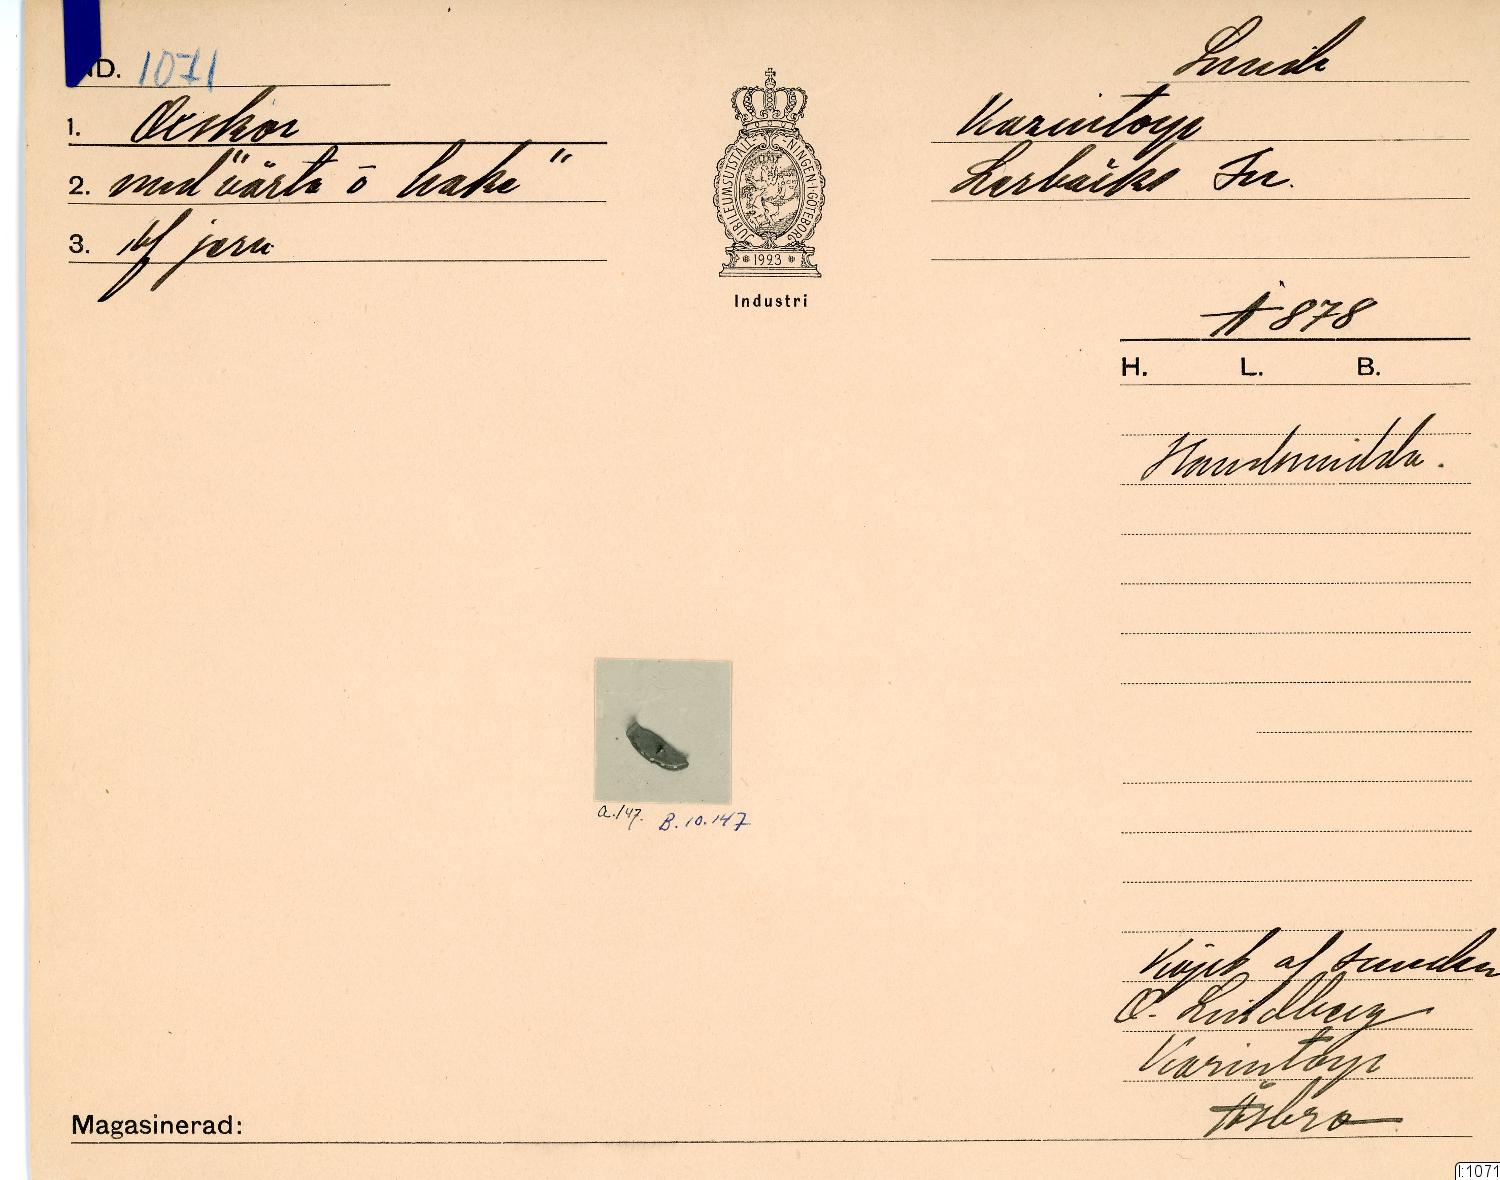 IND. 1071
Smide
1. Oxskor
Karintorp
2. med "värta ö hake"
Lerbäcks Sn.
3. af jern
JUBILEUMSUTSTÄLLNINGEN I GÖTEBORG
1923
Industri
Å 878
H. L. B.
Handsmidda.
a.147. B.10.147
Köpt af smeden
O. Lindberg
Karintorp
Åsbro
Magasinerad:
I:1071